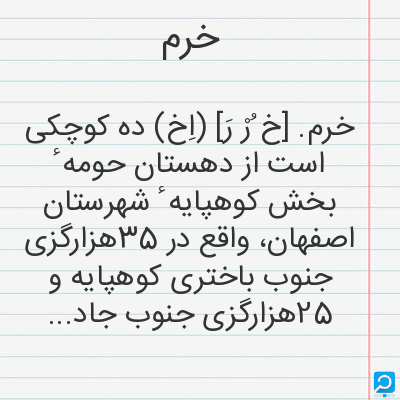 خرم
خرم. [خ ُرْ رَ] (اِخ) ده کوچکی
است از دهستان حومه ٔ
بخش کوهپایه ٔ شهرستان
اصفهان، واقع در ۳۵هزارگزی
جنوب باختری کوهپایه و
۲۵هزارگزی جنوب جاد...